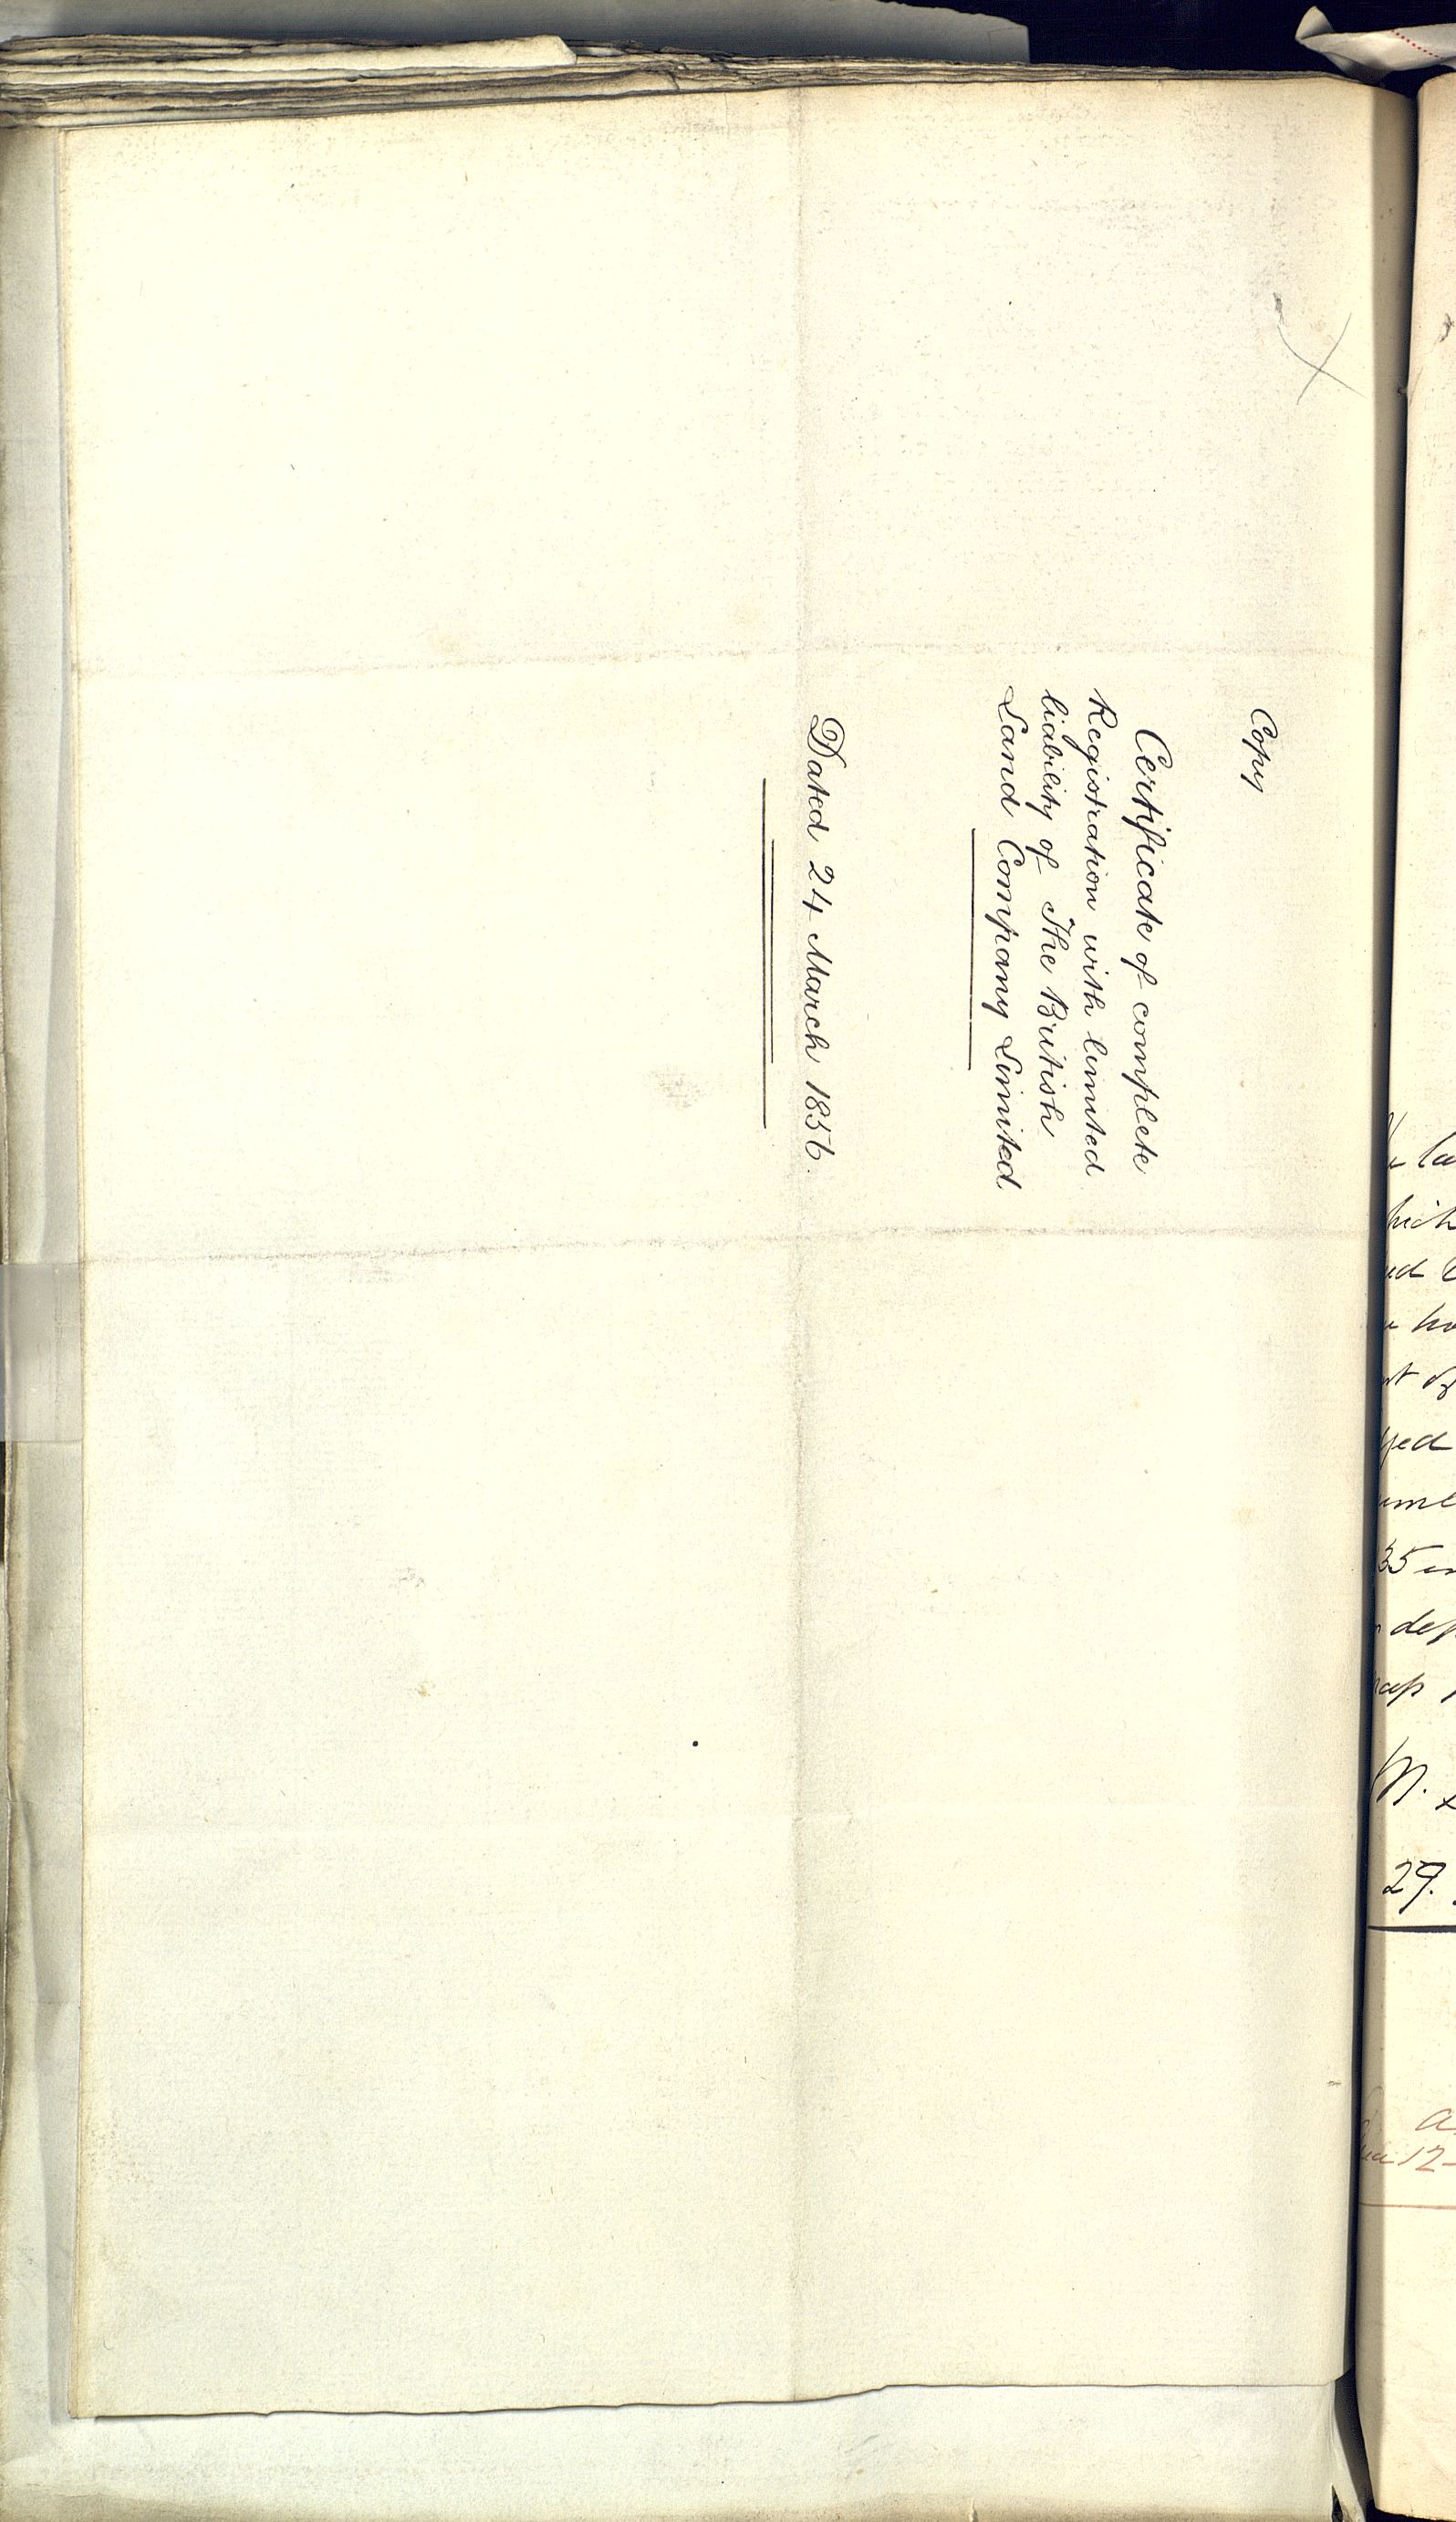 Copy
Certificate of complete
Registration with limited
liability of The British
Land Company Limited
Dated 24 March 1856.
35
29.
12